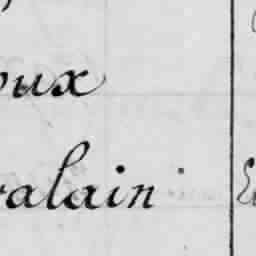 oux
alain